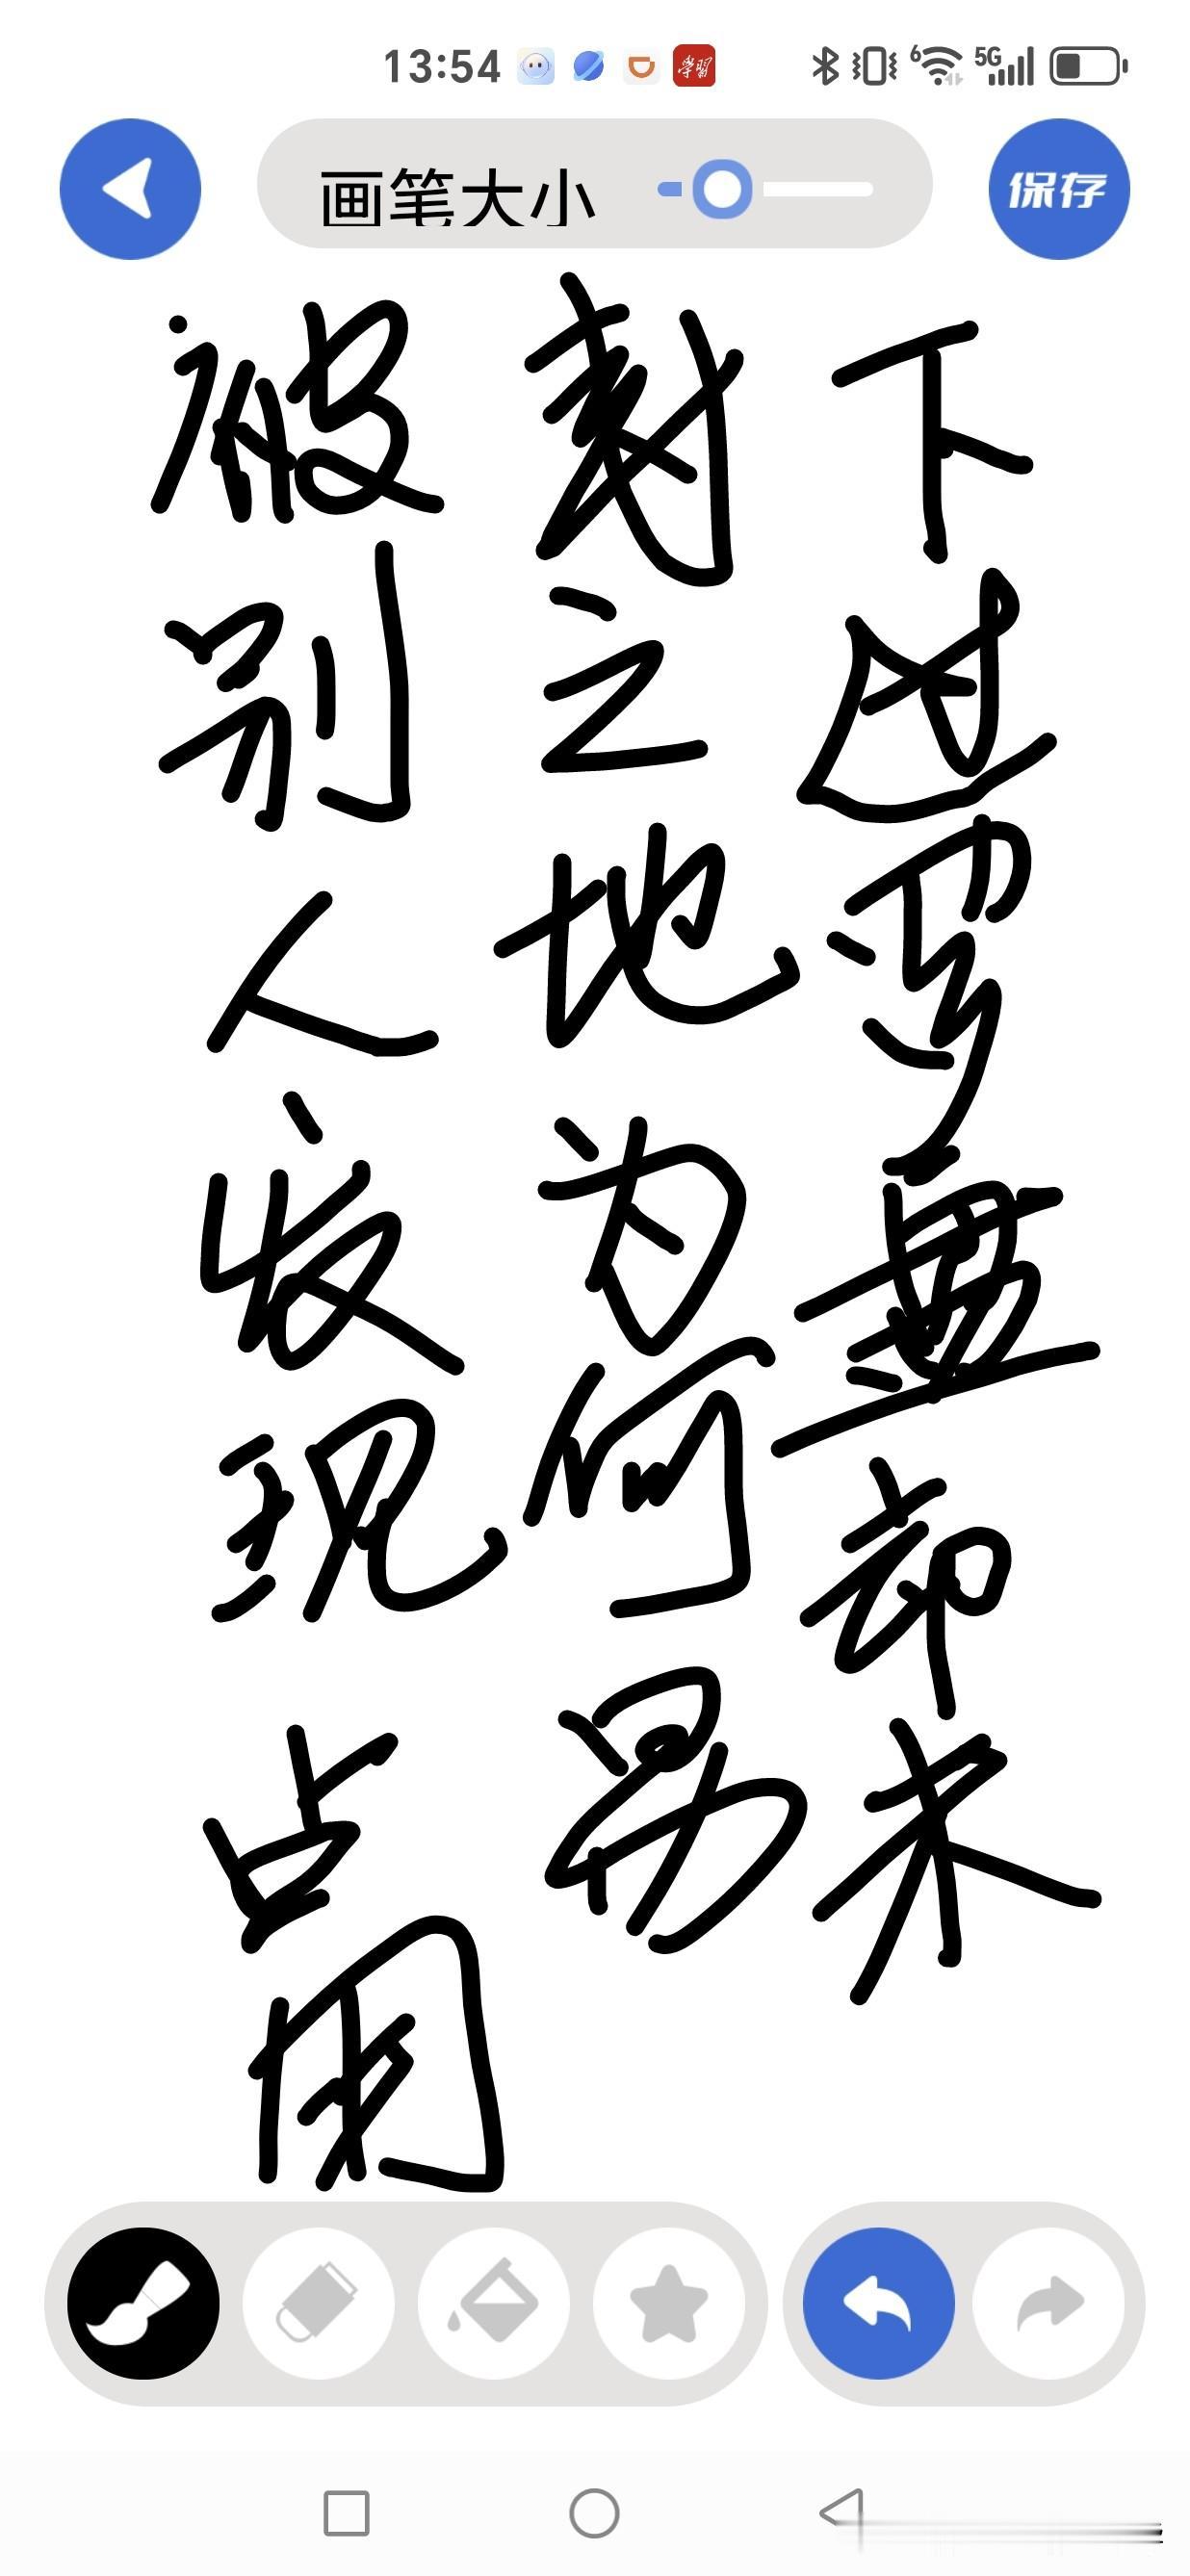 13:54
5G
画笔大小
保存
下过 却未
载之地为何易
被别人发现 占用